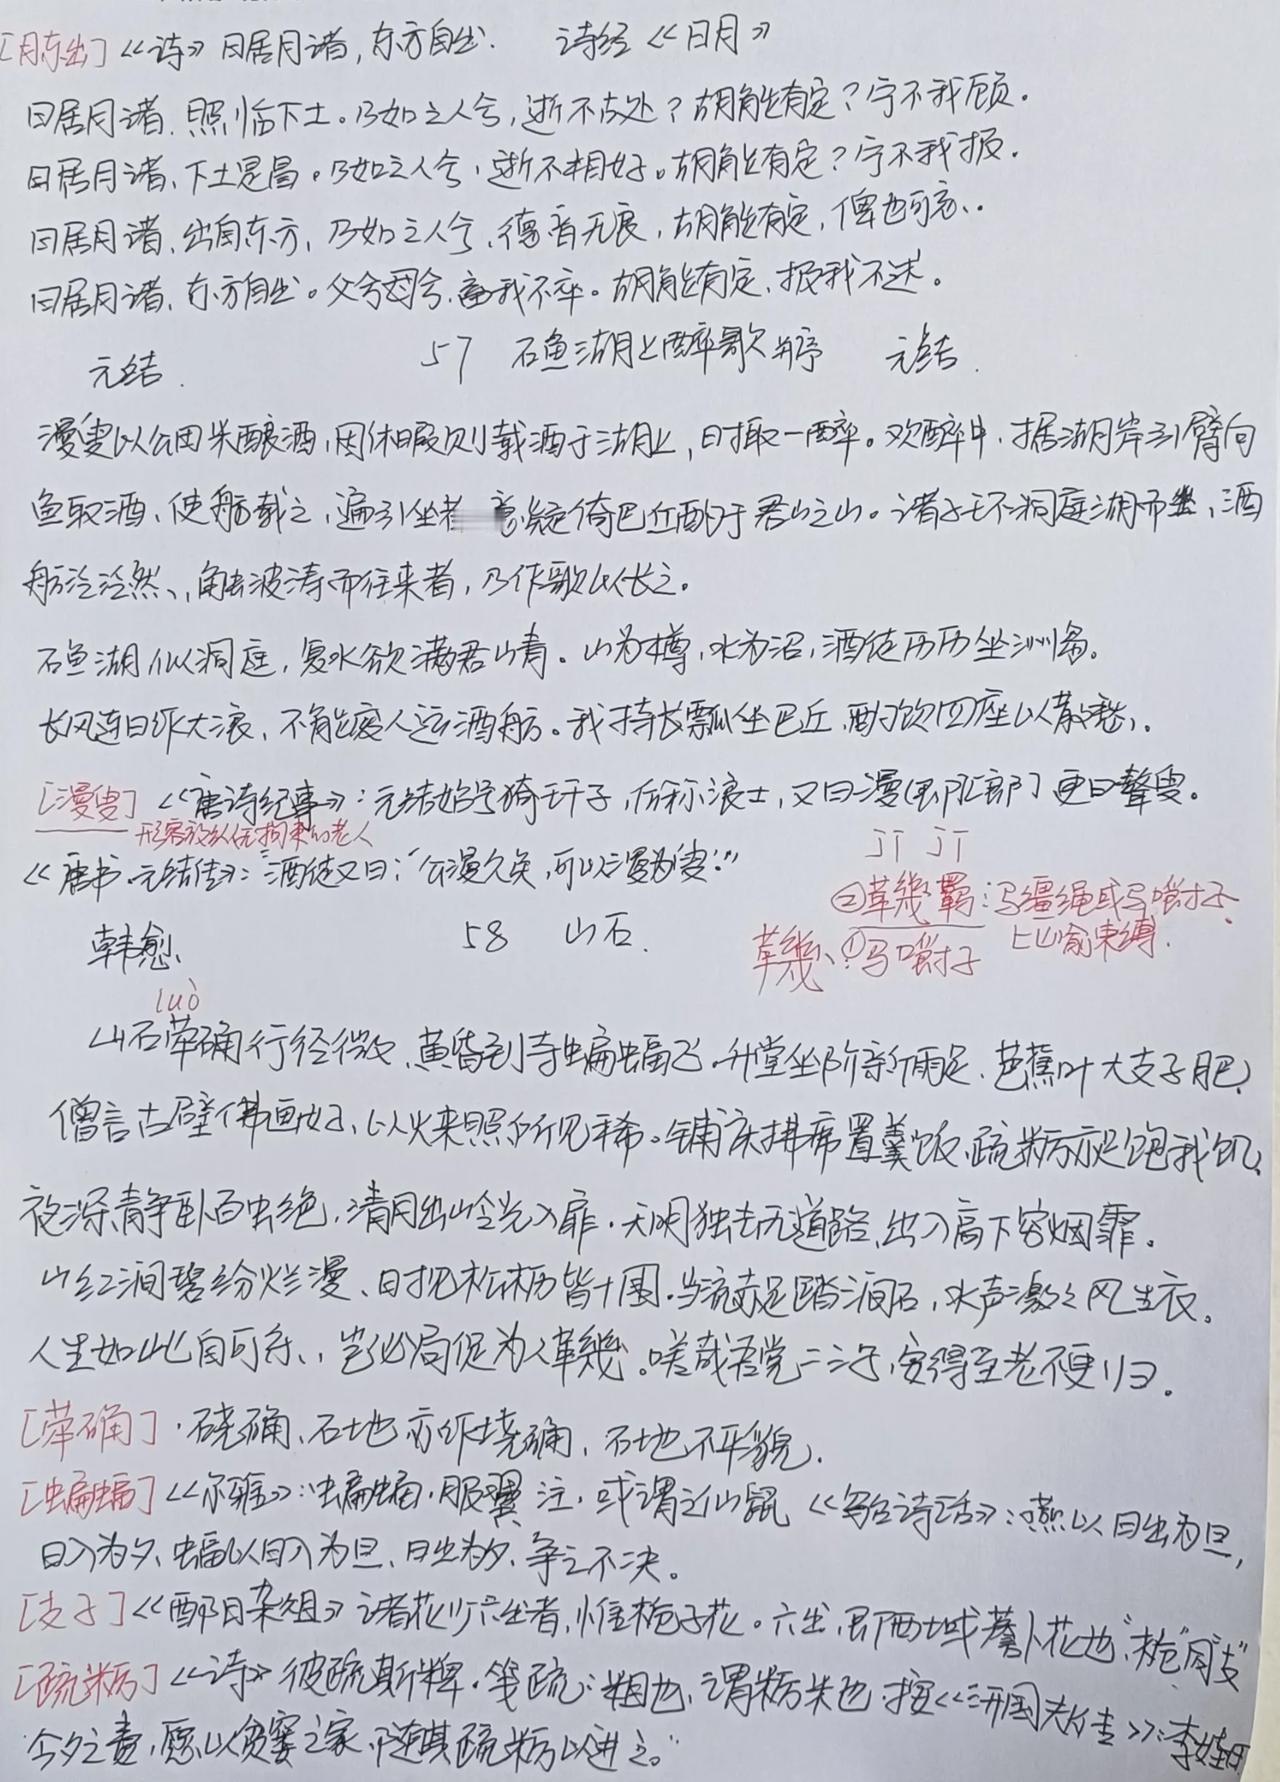 [月东出]《诗》日居月诸,东方自出. 诗经《日月》
日居月诸.照临下土。乃如之人兮,逝不古处?胡能有定?宁不我顾。
日居月诸、下土是冒。乃如之人兮,逝不相好。胡能有定?宁不我报.
日居月诸、出自东方,乃如之人兮、德音无良,胡能有定,俾也可忘.
日居月诸、东方自出。父兮母兮.畜我不卒。胡能有定、报我不述。
元结. 57 石鱼湖上醉歌并序 元结.
漫叟以公田米酿酒,因休暇则载酒于湖上,时取一醉。欢醉中、据湖岸引臂向
鱼取酒,使舫载之,遍引坐者 意疑倚巴丘酌于君山之山。诸子环洞庭湖而坐,酒
舫泛泛然、触波涛而往来者,乃作歌以长之。
石鱼湖似洞庭,夏水欲满君山青。山为樽,水为沼,酒徒历历坐洲岛。
长风连日作大浪、不能废人运酒舫。我持长瓢坐巴丘,酌饮四座以散愁、.
[漫叟]《唐诗纪事》:元结始号猗玗子,称浪士,又曰漫(郎)更曰聱叟。
形容放纵无拘束的老人
《唐书.元结传》:“酒徒又曰:‘公漫久矣,可以漫为叟.’”
jī jī
②鞿羁:马缰绳或马嚼子.
韩愈 58 山石.
鞿、①马嚼子 比喻束缚.
luò
山石荦确行径微、黄昏到寺蝙蝠飞.升堂坐阶新雨足、芭蕉叶大支子肥.
僧言古壁佛画好、以火来照所见稀。铺床拂席置羹饭、疏粝亦足饱我饥、
夜深静卧百虫绝,清月出岭光入扉.天明独去无道路、出入高下穷烟霏。
山红涧碧纷烂漫、时见松枥皆十围.当流赤足踏涧石,水声激激风生衣。
人生如此自可乐、,岂必局促为人鞿。嗟哉吾党二三子,安得至老不更归.
[荦确].硗确、石地亦作垗确,石地不平貌.
[蝙蝠]《尔雅》:蝙蝠.服翼 注,或谓之仙鼠 诗话》:燕以日出为旦,
日入为夕、蝠以日入为旦、日出为夕、争之不决。
[支子]《酉阳杂俎》诸花少六出者,惟栀子花。六出,即西域薝卜花也“栀”同“支”
[疏粝]《诗》彼疏斯粺.笺疏:粗也、谓粝米也.按《汧国夫人传》:李娃曰
“今夕之费,愿以贫窭之家,随其疏粝以进之。”